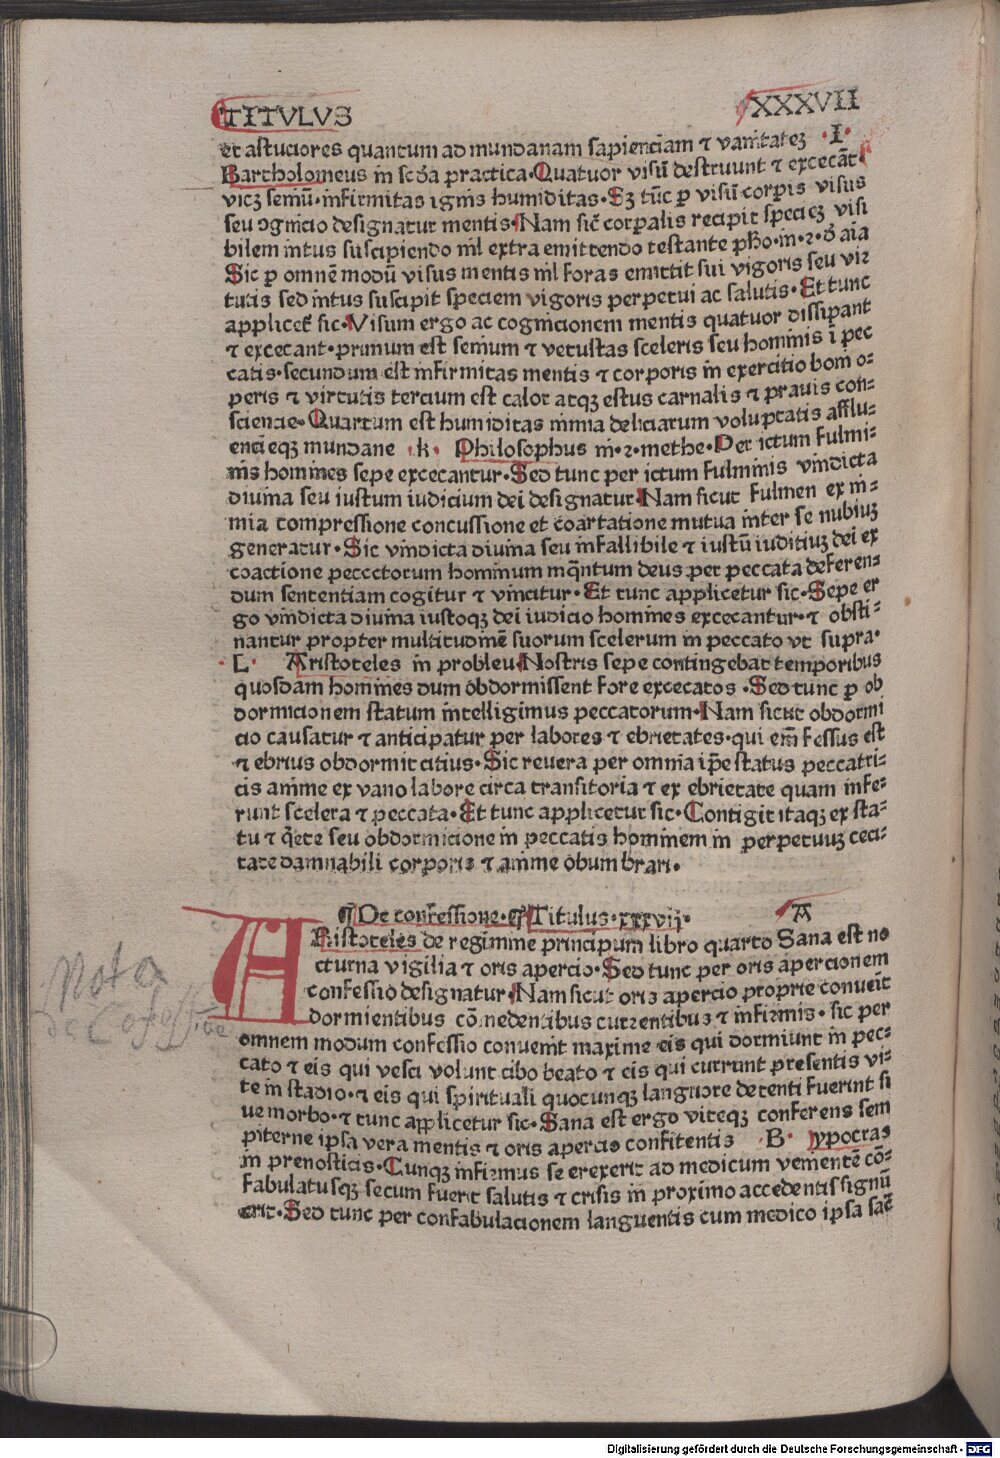 TITVLVS XXXVII
et astuciores quantum ad mundanam sapienciam ⁊ vanitateʒ ·I·
Bartholomeus in scďa practica·Quatuor visū destruunt ⁊ excecāt·
vicʒ semū·infirmitas ignis humiditas·Eʒ tūc p visū corpis visus
seu ɔgnicio designatur mentis·Nam sic̄ corpalis recipit specieʒ visi
bilem intus suscipiendo nil extra emittendo testante pho·in·2·ď aīa
Sic p omnē modū visus mentis nil foras emittit sui vigoris seu vir
tutis sed intus suscipit speciem vigoris perpetui ac salutis·Et tunc
applicet̄ sic·Visum ergo ac cognicionem mentis quatuor dissipant
⁊ excecant·primum est senium ⁊ vetustas sceleris seu hominis ī pec
catis·secundum est infirmitas mentis ⁊ corporis in exercitio boni o-
peris ⁊ virtutis tercium est calor atqʒ estus carnalis ⁊ prauis con-
sciencie·Quartum est humiditas nimia deliciarum voluptatis afflu-
encieqʒ mundane ·k· Philosophus in·2·methe·Per ictum fulmi-
nis homines sepe excecantur·Sed tunc per ictum fulminis vindicta
diuina seu iustum iudicium dei designatur·Nam sicut fulmen ex ni-
mia compressione concussione et coartatione mutua inter se nubiuʒ
generatur·Sic vindicta diuina seu infallibile ⁊ iustū iuditiuʒ dei ex
coactione peccctorum hominum inq̄ntum deus per peccata deferen-
dum sententiam cogitur ⁊ vincitur·Et tunc applicetur sic·Sepe er
go vindicta diuina iustoqʒ dei iudicio homines excecantur·⁊ obsti-
nantur propter multitudinē suorum scelerum in peccato vt supra·
·L· Aristoteles in probleu·Nostris sepe contingebat temporibus
quosdam homines dum obdormissent fore excecatos·Sed tunc p ob
dormicionem statum intelligimus peccatorum·Nam sicut obdormi
cio causatur ⁊ anticipatur per labores ⁊ ebrietates·qui em̄ fessus est
⁊ ebrius obdormit citius·Sic reuera per omnia ip̄e status peccatri-
cis anime ex vano labore circa transitoria ⁊ ex ebrietate quam infe-
runt scelera ⁊ peccata·Et tunc applicetur sic·Contigit itaqʒ ex sta-
tu ⁊ q̄ete seu obdormicione in peccatis hominem in perpetuuʒ ceci-
tate damnabili corporis ⁊ anime obumbrari·
¶ De confessione·¶ Titulus·xxxvij· A
ARistoteles de regimine principum libro quarto Sana est no
cturna vigilia ⁊ oris apercio·Sed tunc per oris apercionem
confessio designatur·Nam sicut oris apercio proprie conueīt
dormientibus cōmedentibus currentibus ⁊ infirmis·sic per
omnem modum confessio conuenit maxime eis qui dormiunt in pec-
cato ⁊ eis qui vesci volunt cibo beato ⁊ eis qui currunt presentis vi-
te in stadio·⁊ eis qui spirituali quocunqʒ languore detenti fuerint si
ue morbo·⁊ tunc applicetur sic·Sana est ergo viteqʒ conferens sem
piterne ipsa vera mentis ⁊ oris apercis confitentis ·B· ypocras
in prenosticis·Cunqʒ infirmus se erexerit ad medicum vementē cō-
fabulatusqʒ secum fuerit salutis ⁊ crisis in proximo accedentis signū
erit·Sed tunc per confabulacionem languentis cum medico ipsa sac̄
Nota
Digitalisierung gefördert durch die Deutsche Forschungsgemeinschaft - DFG